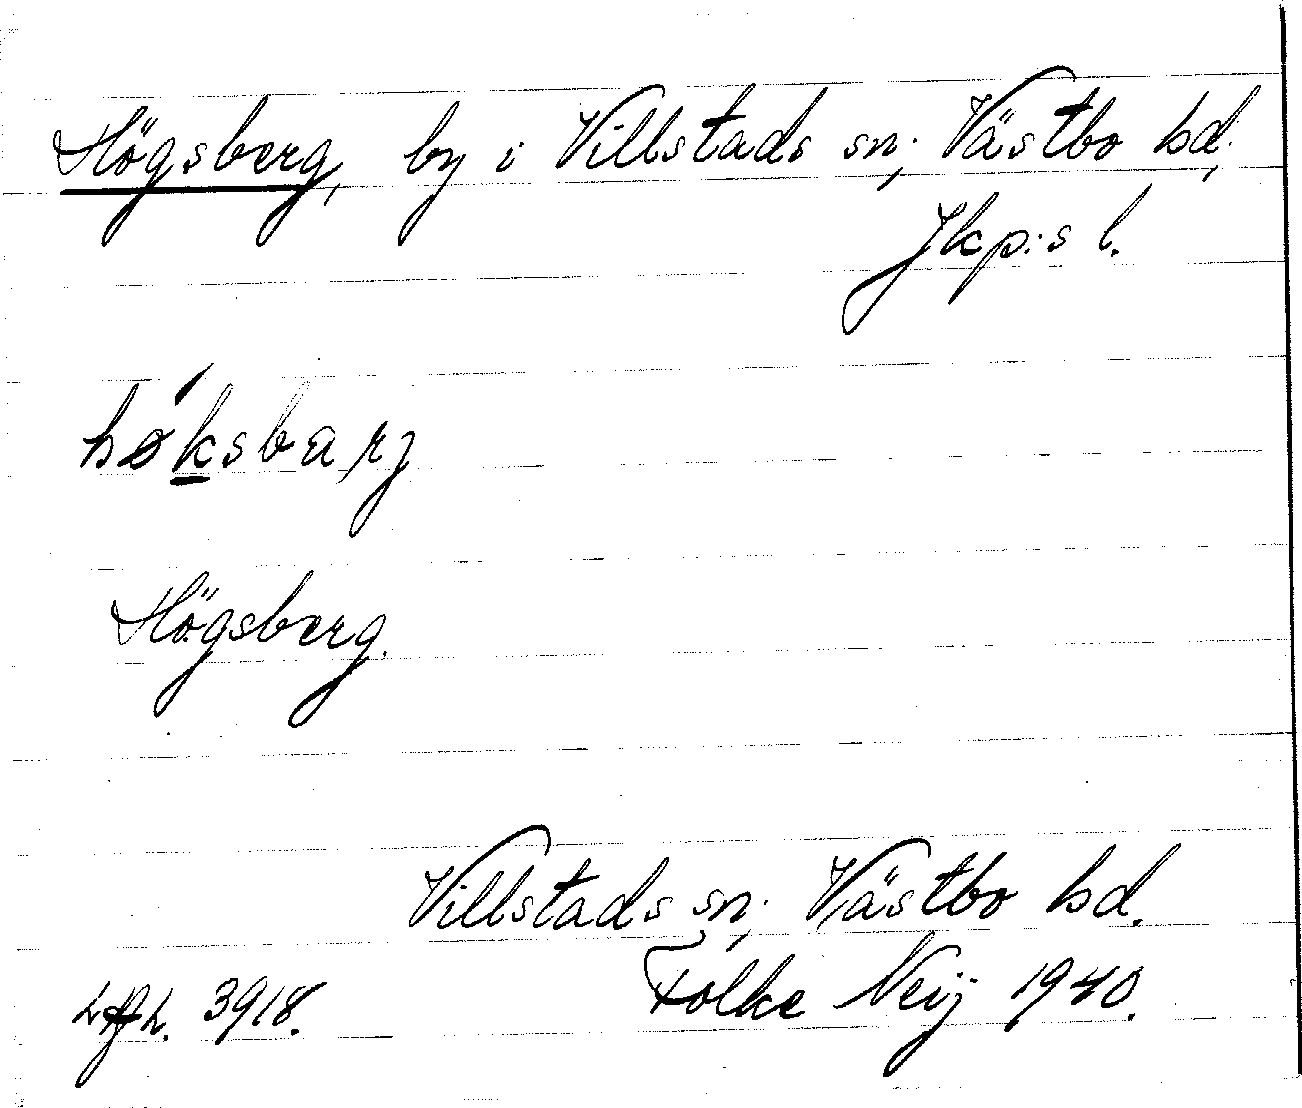 Högsberg, by i Villstads sn; Västbo hd;
Jkp:s l.
høksbarj
Högsberg.
Villstads sn; Västbo hd.
3918. Folke Neij 1940.